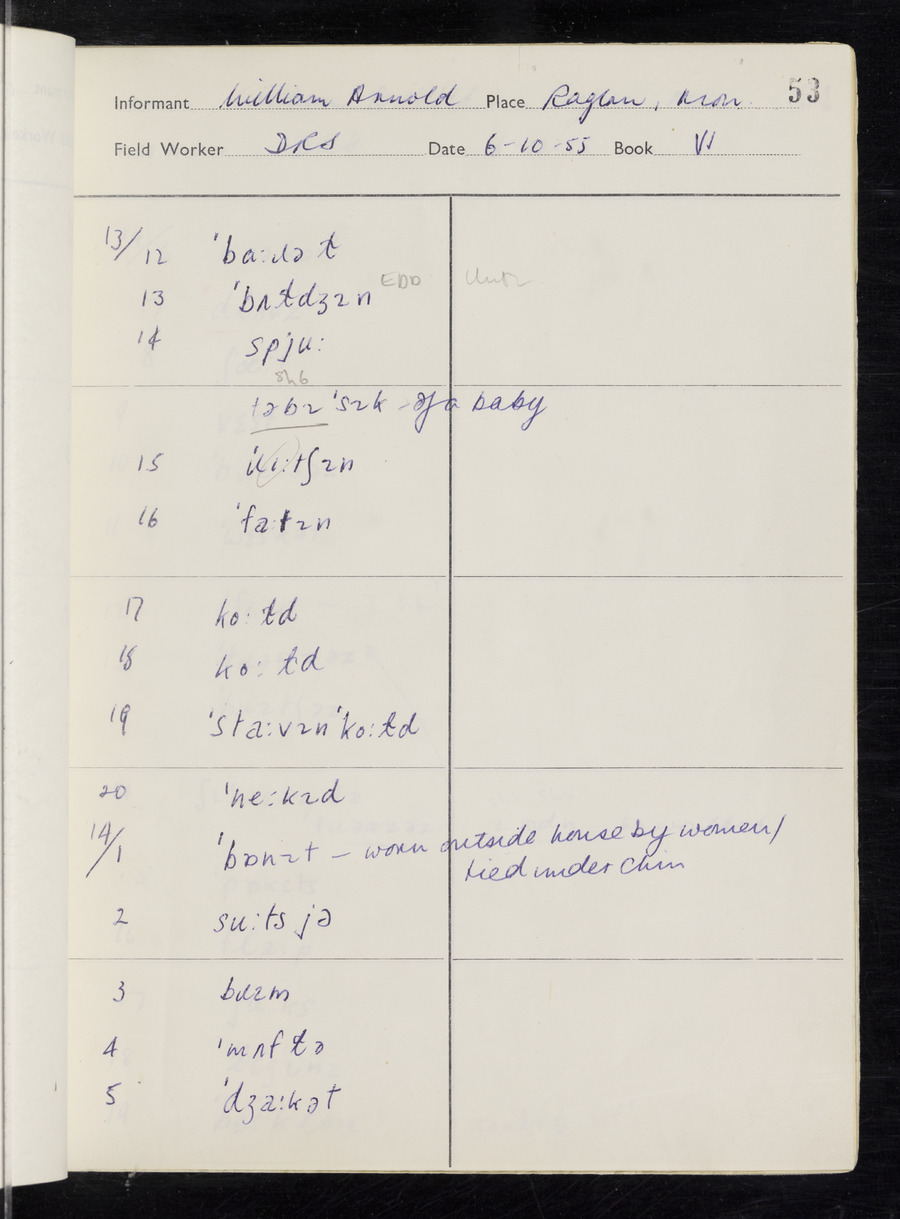 Informant William Arnold Place Raglan, Mon. 53
Field Worker DRS Date 6-10-55 Book VI
13/12 ˈbaːɹət
13 ˈbʌɫdʒɪn EDD
14 spjuː
8h6
təbɪ ˈsɪk - of a baby
15 ˈɪtʃɪn
16 ˈfaːtɪn
17 koːɫd
18 koːɫd
19 ˈstaːvɪn ˈkoːɫd
20 ˈneːkɪd
14/1 ˈbɒnɪt – worn outside house by women /
tied under chin
2 suːts jə
3 bɹɪm
4 ˈmʌfɫə
5 ˈdʒaːkət